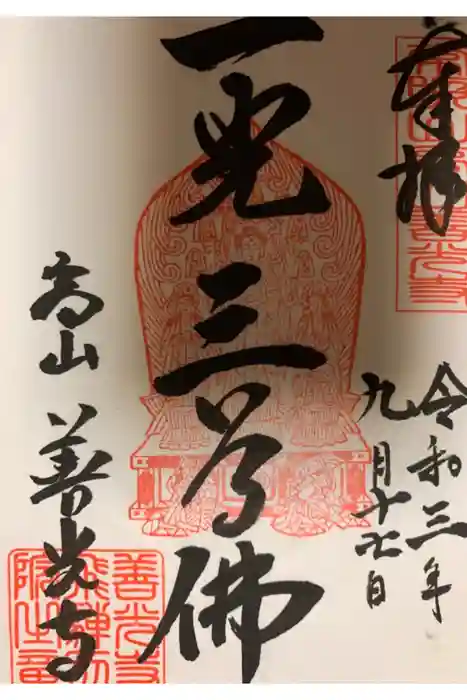 奉拝
令和三年
九月十七日
一光三尊佛
高山 善光寺